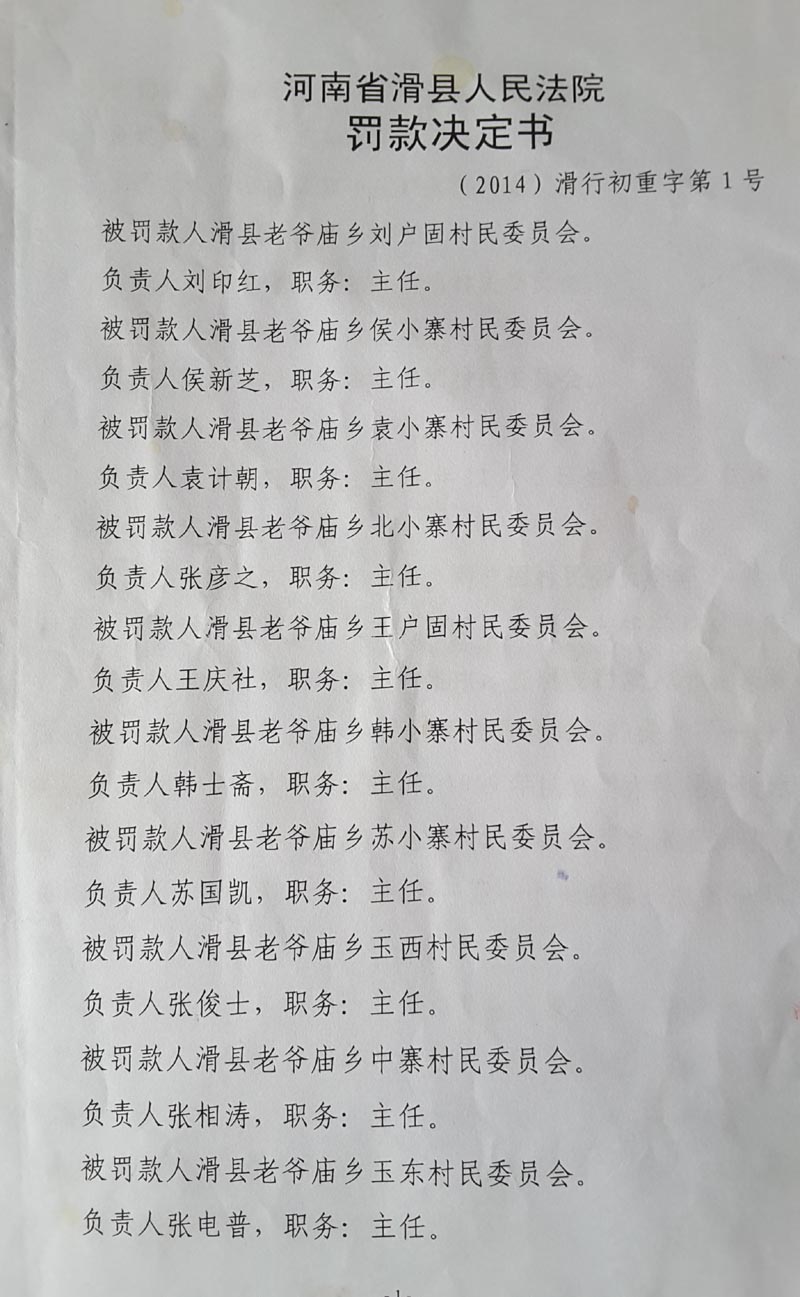 河南省滑县人民法院
罚款决定书
（2014）滑行初重字第1号
被罚款人滑县老爷庙乡刘户固村民委员会。
负责人刘印红，职务：主任。
被罚款人滑县老爷庙乡侯小寨村民委员会。
负责人侯新芝，职务：主任。
被罚款人滑县老爷庙乡袁小寨村民委员会。
负责人袁计朝，职务：主任。
被罚款人滑县老爷庙乡北小寨村民委员会。
负责人张彦之，职务：主任。
被罚款人滑县老爷庙乡王户固村民委员会。
负责人王庆社，职务：主任。
被罚款人滑县老爷庙乡韩小寨村民委员会。
负责人韩士斋，职务：主任。
被罚款人滑县老爷庙乡苏小寨村民委员会。
负责人苏国凯，职务：主任。
被罚款人滑县老爷庙乡玉西村民委员会。
负责人张俊士，职务：主任。
被罚款人滑县老爷庙乡中寨村民委员会。
负责人张相涛，职务：主任。
被罚款人滑县老爷庙乡玉东村民委员会。
负责人张电普，职务：主任。
-1-